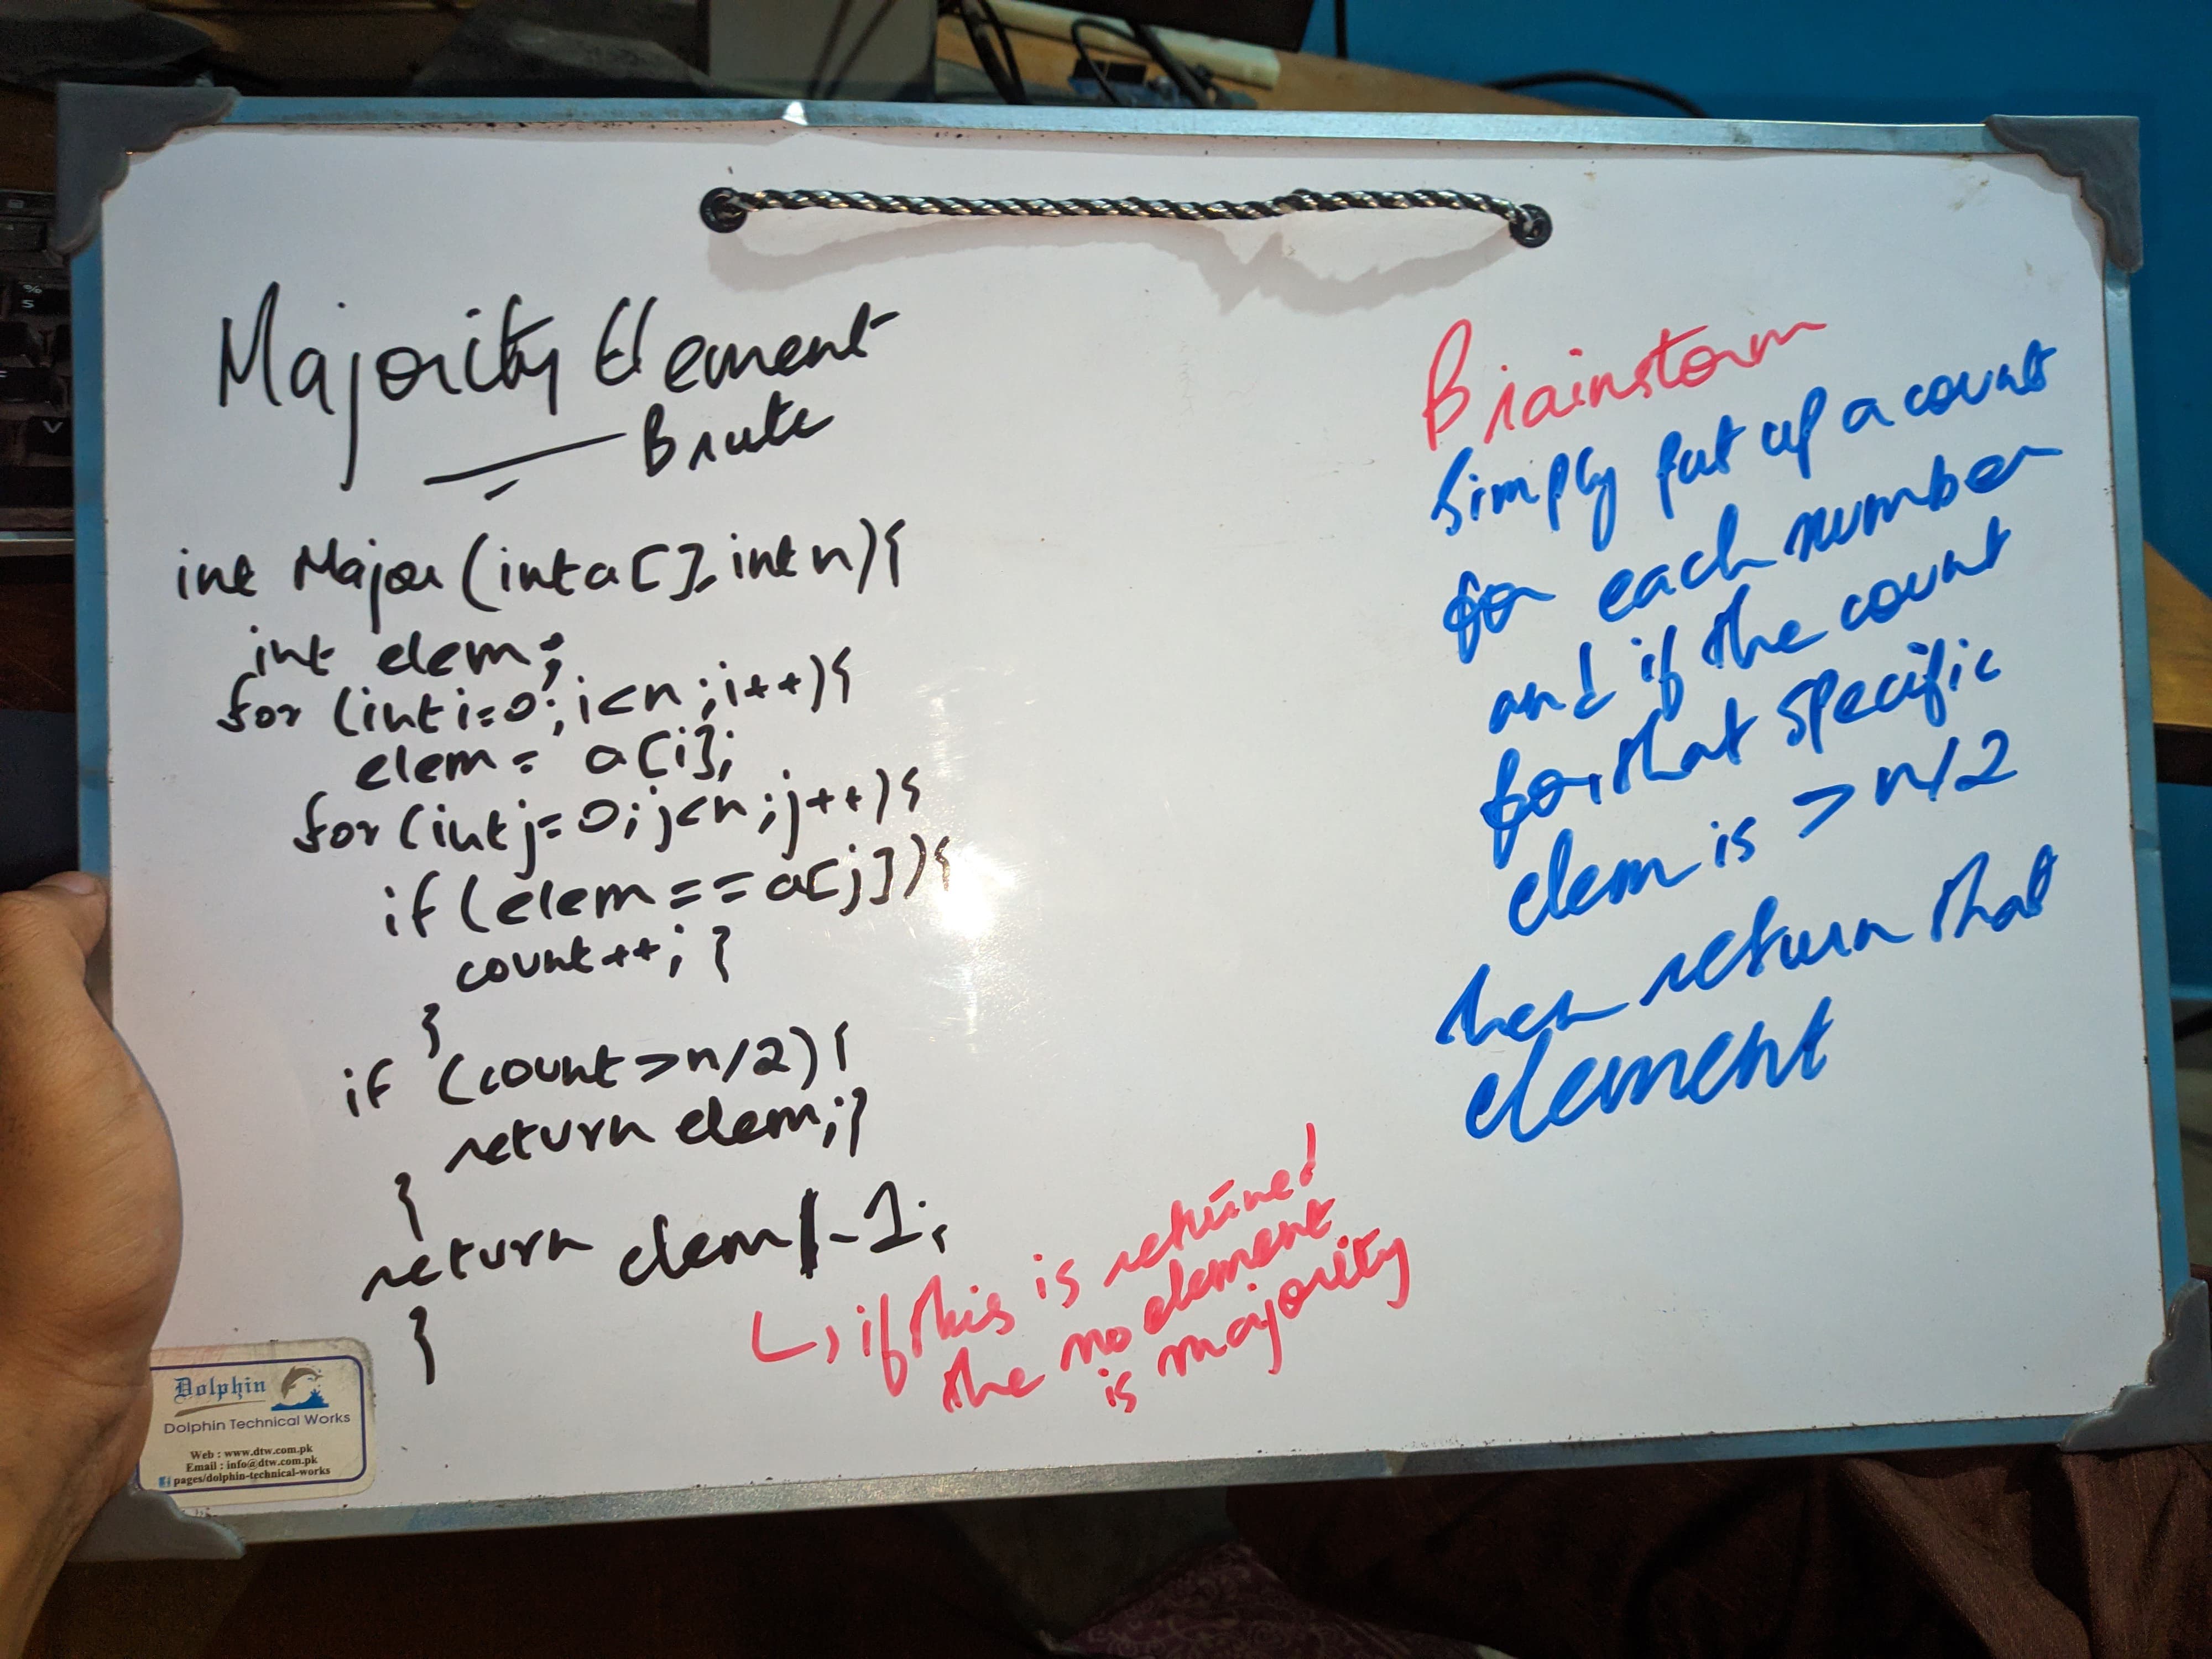 Majority Element
Brute
int Major (int a[], int n){
int elem;
for (int i=0; i<n; i++){
elem = a[i];
for (int j=0; j<n; j++){
if (elem == a[j]){
count++; }
}
if (count > n/2){
return elem;}
}
return elem/-1;
}
↳ if this is returned
the no element
is majority
Brainstorm
Simply put up a count
for each number
and if the count
for that specific
elem is > n/2
then return that
element
Dolphin
Dolphin Technical Works
Web : www.dtw.com.pk
Email : info@dtw.com.pk
pages/dolphin-technical-works
%
5
V